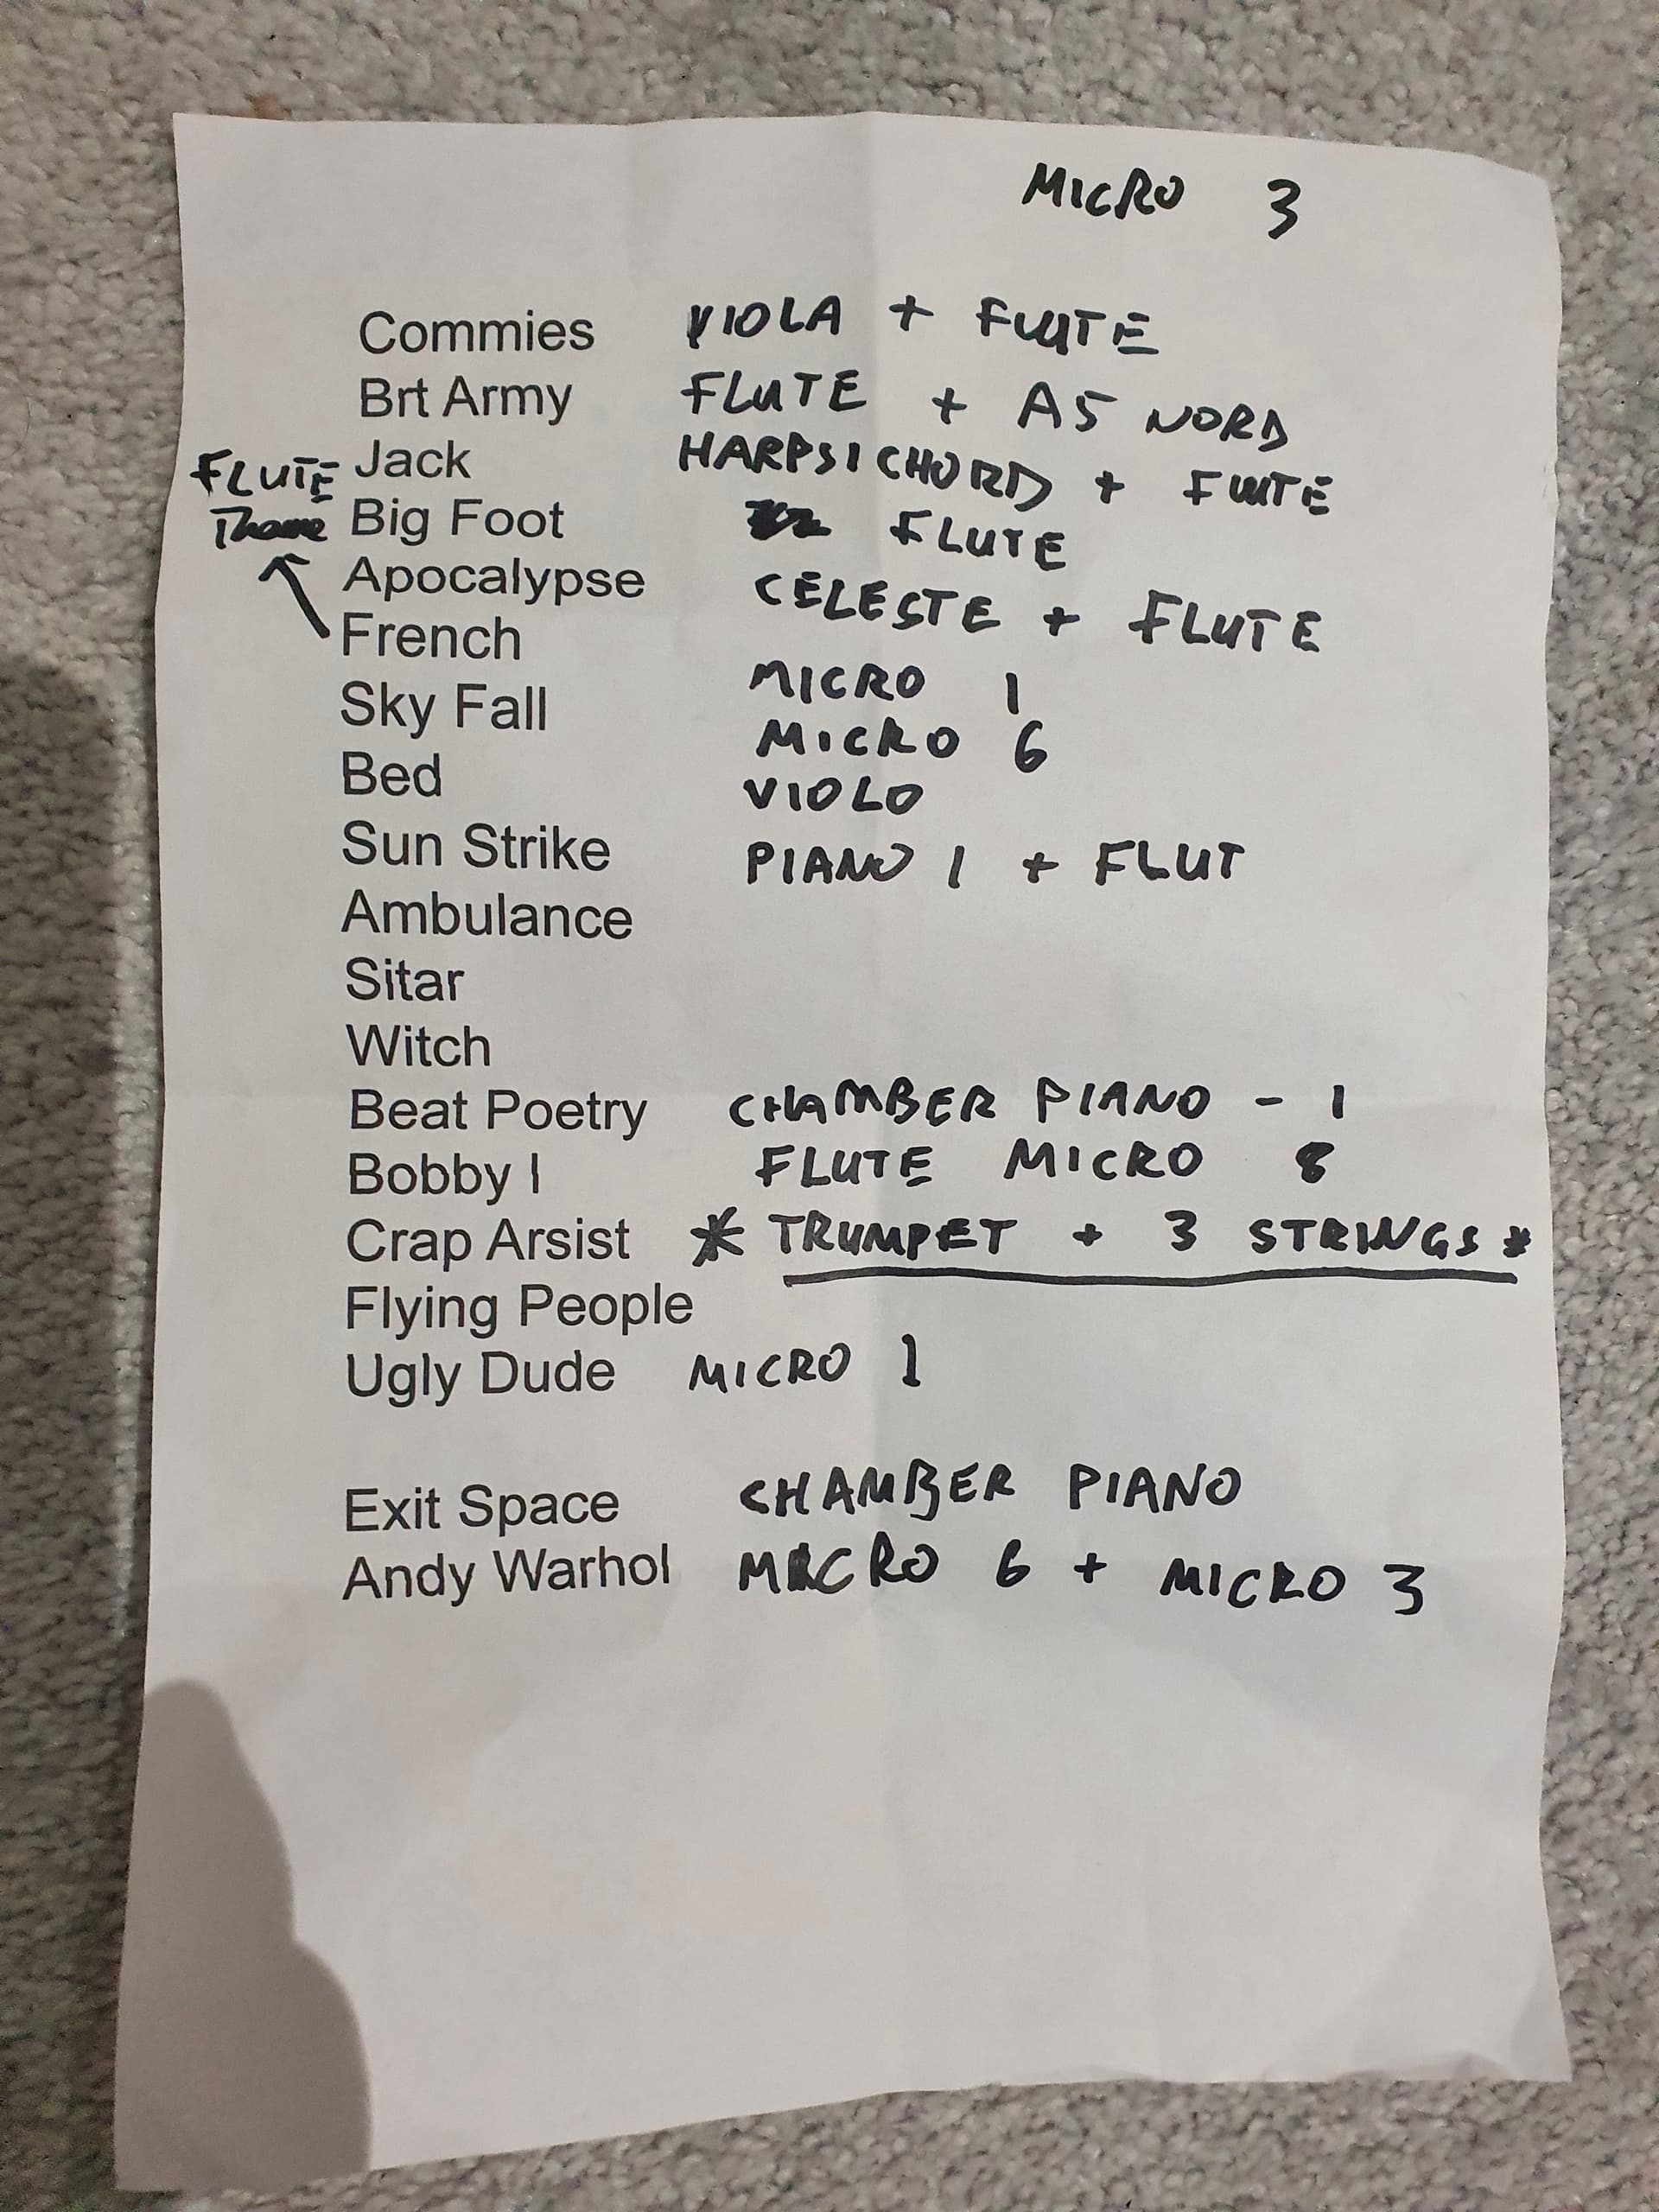 MICRO 3
Commies VIOLA + FLUTE
Brt Army FLUTE + A5 NORD
FLUTE Jack HARPSICHORD + FLUTE
Theme Big Foot FLUTE
Apocalypse CELESTE + FLUTE
French
Sky Fall MICRO 1
Bed MICRO 6
VIOLO
Sun Strike PIANO 1 + FLUT
Ambulance
Sitar
Witch
Beat Poetry CHAMBER PIANO - 1
Bobby I FLUTE MICRO 8
Crap Arsist * TRUMPET + 3 STRINGS *
Flying People
Ugly Dude MICRO 1
Exit Space CHAMBER PIANO
Andy Warhol MICRO 6 + MICRO 3